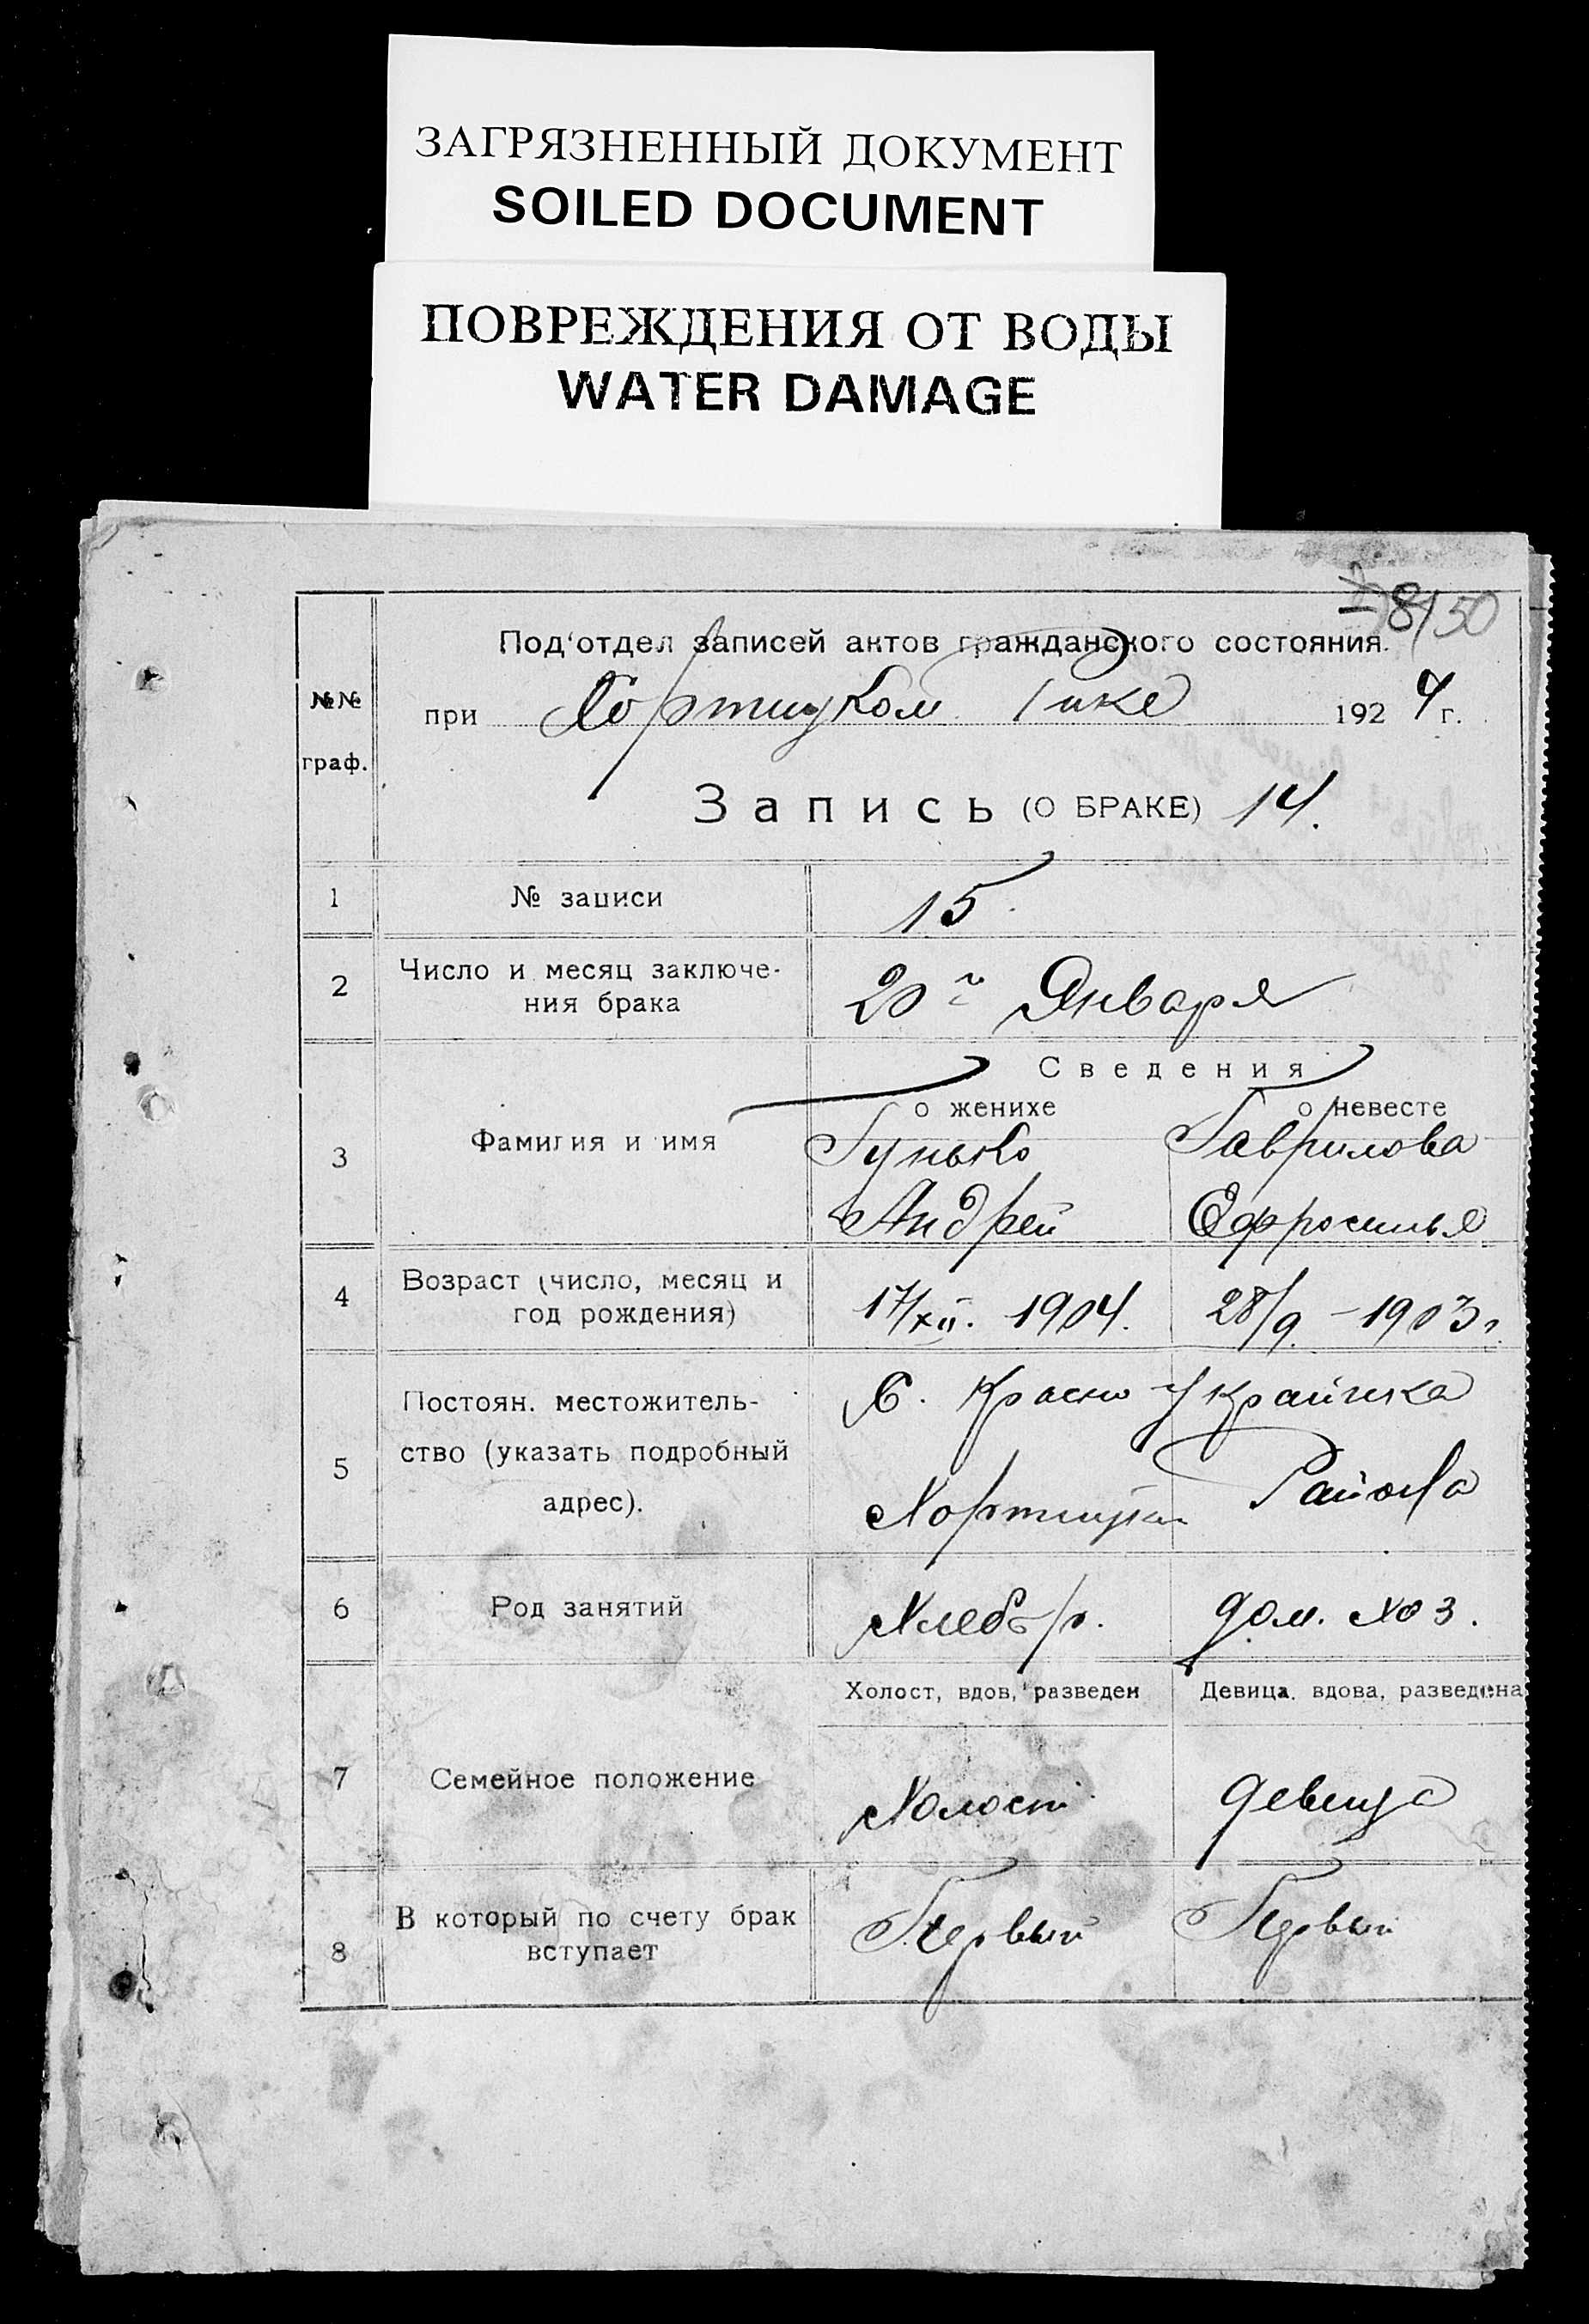 ЗАГРЯЗНЕННЫЙ ДОКУМЕНТ
SOILED DOCUMENT
ПОВРЕЖДЕНИЯ ОТ ВОДЫ
WATER DAMAGE
8/50
Под'отдел записей актов гражданского состояния.
№№ граф.
при Хортицком Рике 1924 г.
Запись (О БРАКЕ) 14.
1 № записи 15
2 Число и месяц заключе-
ния брака 20го Января
Сведения
о женихе о невесте
3 Фамилия и имя Гунько Гаврилова
Андрей Ефросинья
4 Возраст (число, месяц и
год рождения) 17/XII. 1904. 28/9 - 1903 г.
Постоян. местожитель- Х. Красно Украинка
5 ство (указать подробный
адрес). Хортицкого Района
6 Род занятий Хлебор. дом. хоз.
Холост, вдов, разведен Девица, вдова, разведена
7 Семейное положение Холост девица
8 В который по счету брак
вступает Первый Первый